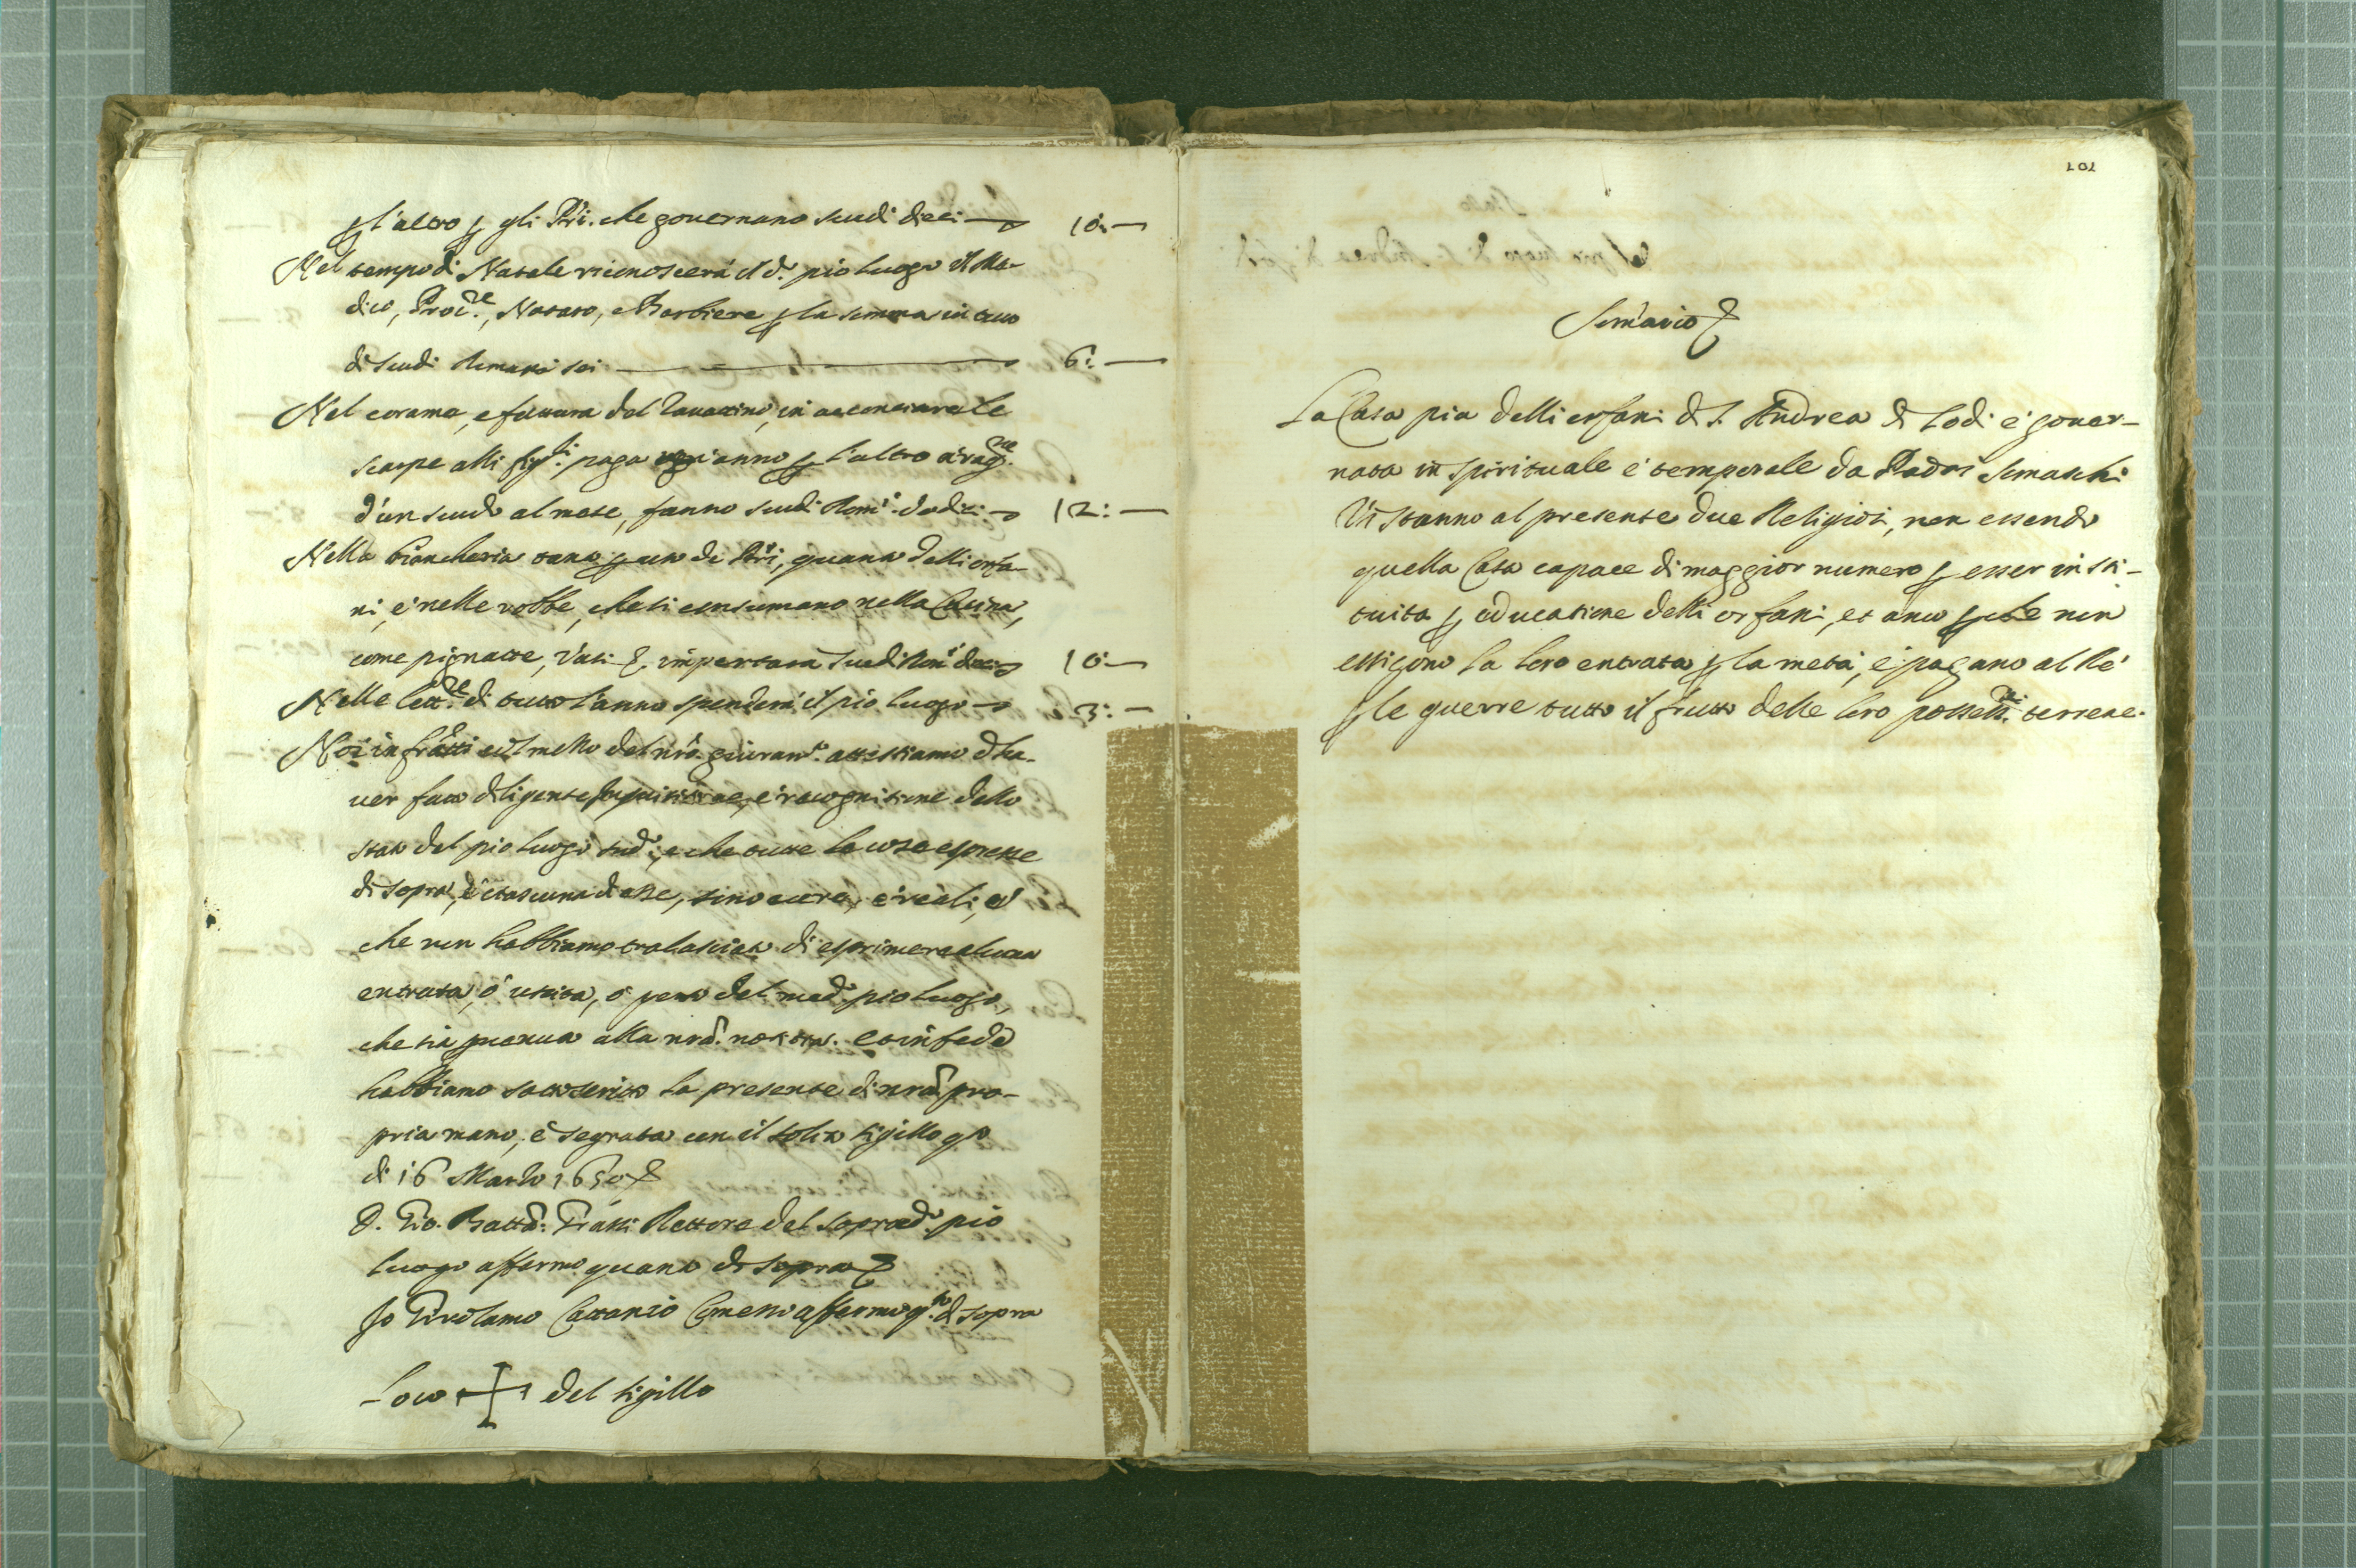 l'altro p gli Pri. che governano scudi dieci — 10:—
Nel tempo di Natale riconoscerà il d.º pio luogo il Me-
dico, Proc.re, Notaro, e Barbiere p la somma in tutto
di scudi Romani sei — 6:—
Nel corame, e fattura dal Zavattino, in acconciare le
scarpe alli figli: paga ogni anno p l'altro à rag.ne
d'un scudo al mese, fanno scudi Rom.i dodici — 12:—
Nella biancheria tanto p uso de Pri, quanto delli orfa-
ni, e nelle robbe, che si consumano nella Cucina,
come pignatte, Vasi &, importarà scudi Rom.i dieci — 10:—
Nelle lett.re di tutto l'anno spenderà il pio luogo — 3:—
Noi infratti col mezzo del nro. giuram.to attestiamo d'ha-
ver fatto diligente inquisitione, e recognitione dello
stato del pio luogo sud.º, e che tutte le cose espresse
di sopra, e ciascuna d'esse, sono vere, e reali, e
che non habbiamo tralasciato di esprimere alcuna
entrata, ò uscita, ò peso del med.º pio luogo,
che sia pervenuta alla nrã. notitia. Et in fede
habbiamo sottoscritto la presente di nrã pro-
pria mano, e segnata con il solito sigillo q.sto
di 16 Marzo 1650 &
D. Gio. Battã: Fratti Rettore del sopradº. pio
luogo affermo quanto di sopra &
Io Girolamo Cattanio Comesso affermo q.to di sopra
Loco + del sigillo
101
Somario &
La Casa pia delli orfani di S. Andrea di Lodi è gover-
nata in spirituale e temporale da Padri Somaschi
Vi stanno al presente due Religiosi, non essendo
quella Casa capace di maggior numero p esser insti-
tuita p educatione delli orfani, et anco p che non
essigono la loro entrata p la metà, e pagano al Rè
p le guerre tutto il frutto delle loro possess.ni terrene.